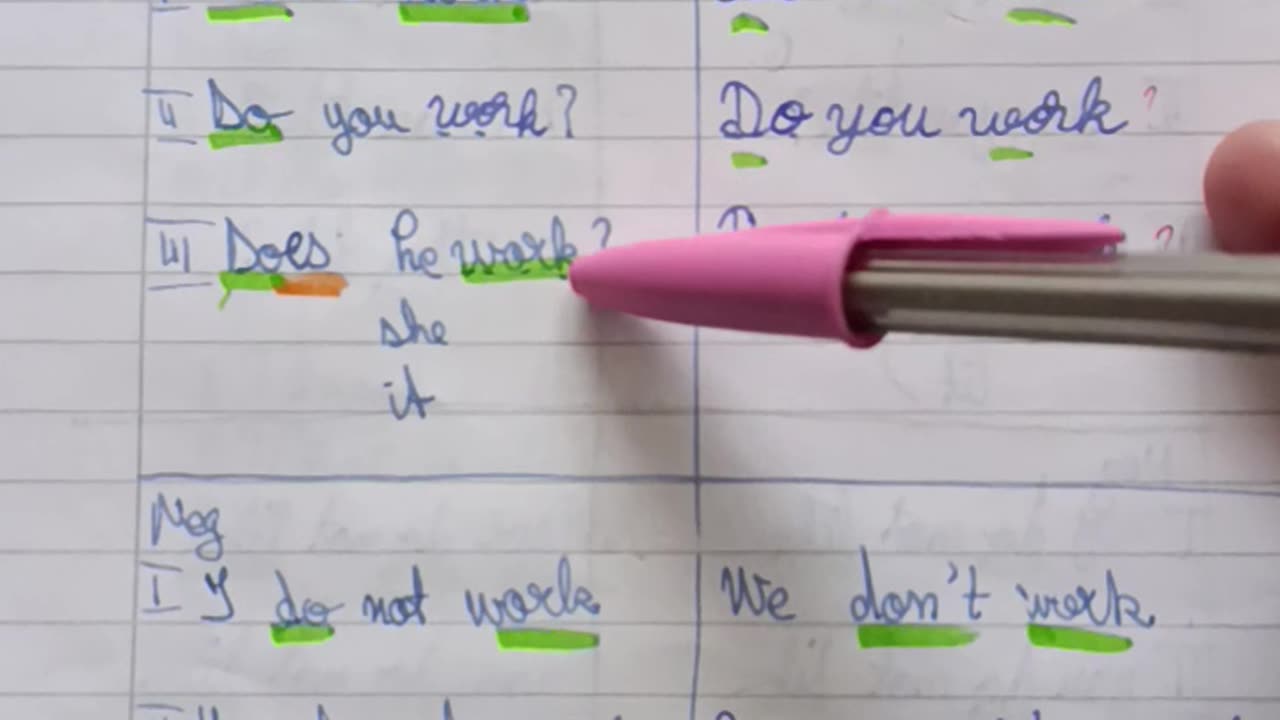 II Do you work? Do you work?
III Does he work? ?
she
it
Neg
I I do not work We don't work